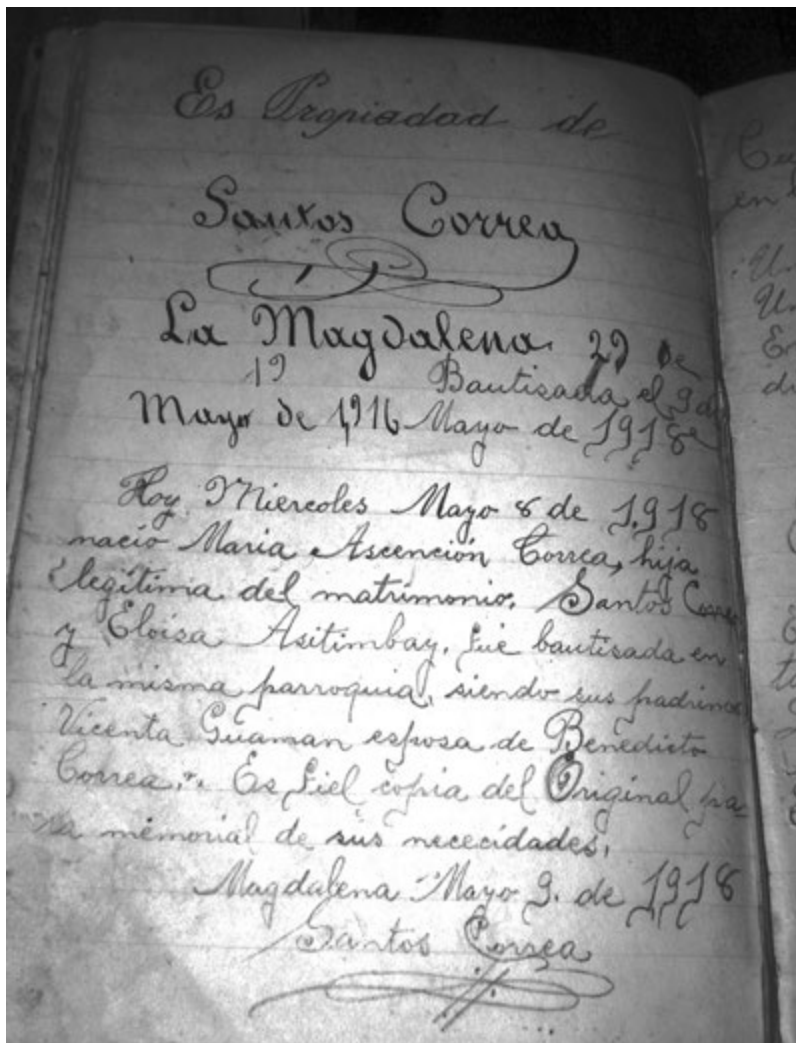 Es Propiadad de
Santos Correa
La Magdalena. 29 de
19 Bautisada el 9 de
Mayo de 1,916 Mayo de 1918
Hoy Miercoles Mayo 8 de 1.918
nació Maria Ascención Correa, hija
legítima del matrimonio. Santos Correa
y Eloisa Asitimbay, fue bautisada en
la misma parroquia, siendo sus padrinos
Vicenta Guaman esposa de Benedicto
Correa. Es fiel copia del Original pa-
ra memorial de sus nececidades.
Magdalena Mayo 9. de 1918
Santos Correa